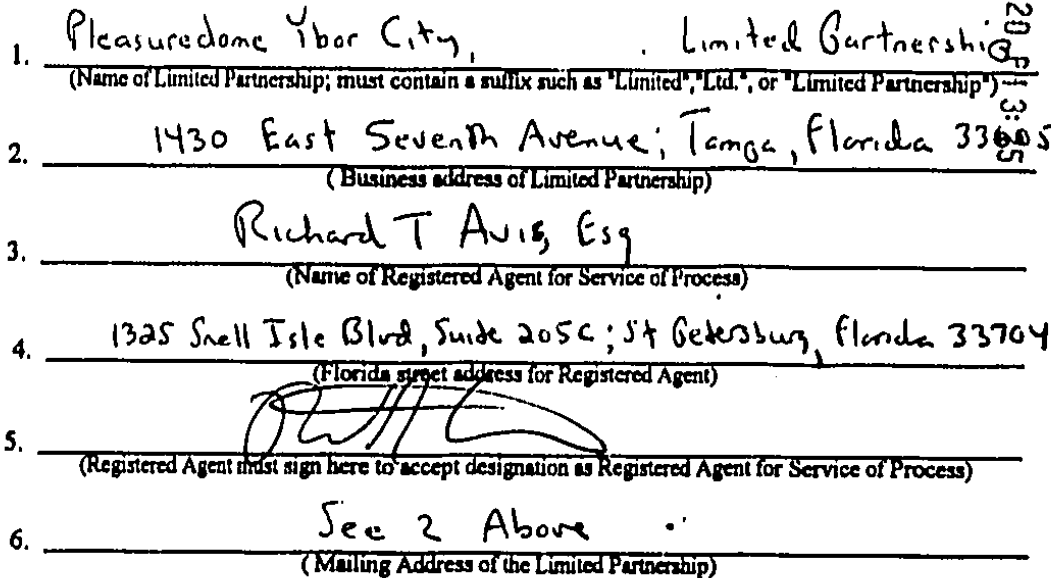 1. Pleasuredome Ybor City, Limited Partnership
(Name of Limited Partnership; must contain a suffix such as "Limited","Ltd.", or "Limited Partnership")
2. 1430 East Seventh Avenue; Tampa, Florida 33605
( Business address of Limited Partnership)
3. Richard T Avis, Esq
(Name of Registered Agent for Service of Process)
4. 1325 Snell Isle Blvd, Suite 205C; St Petersburg, Florida 33704
(Florida street address for Registered Agent)
5.
(Registered Agent must sign here to accept designation as Registered Agent for Service of Process)
6. See 2 Above
( Mailing Address of the Limited Partnership)